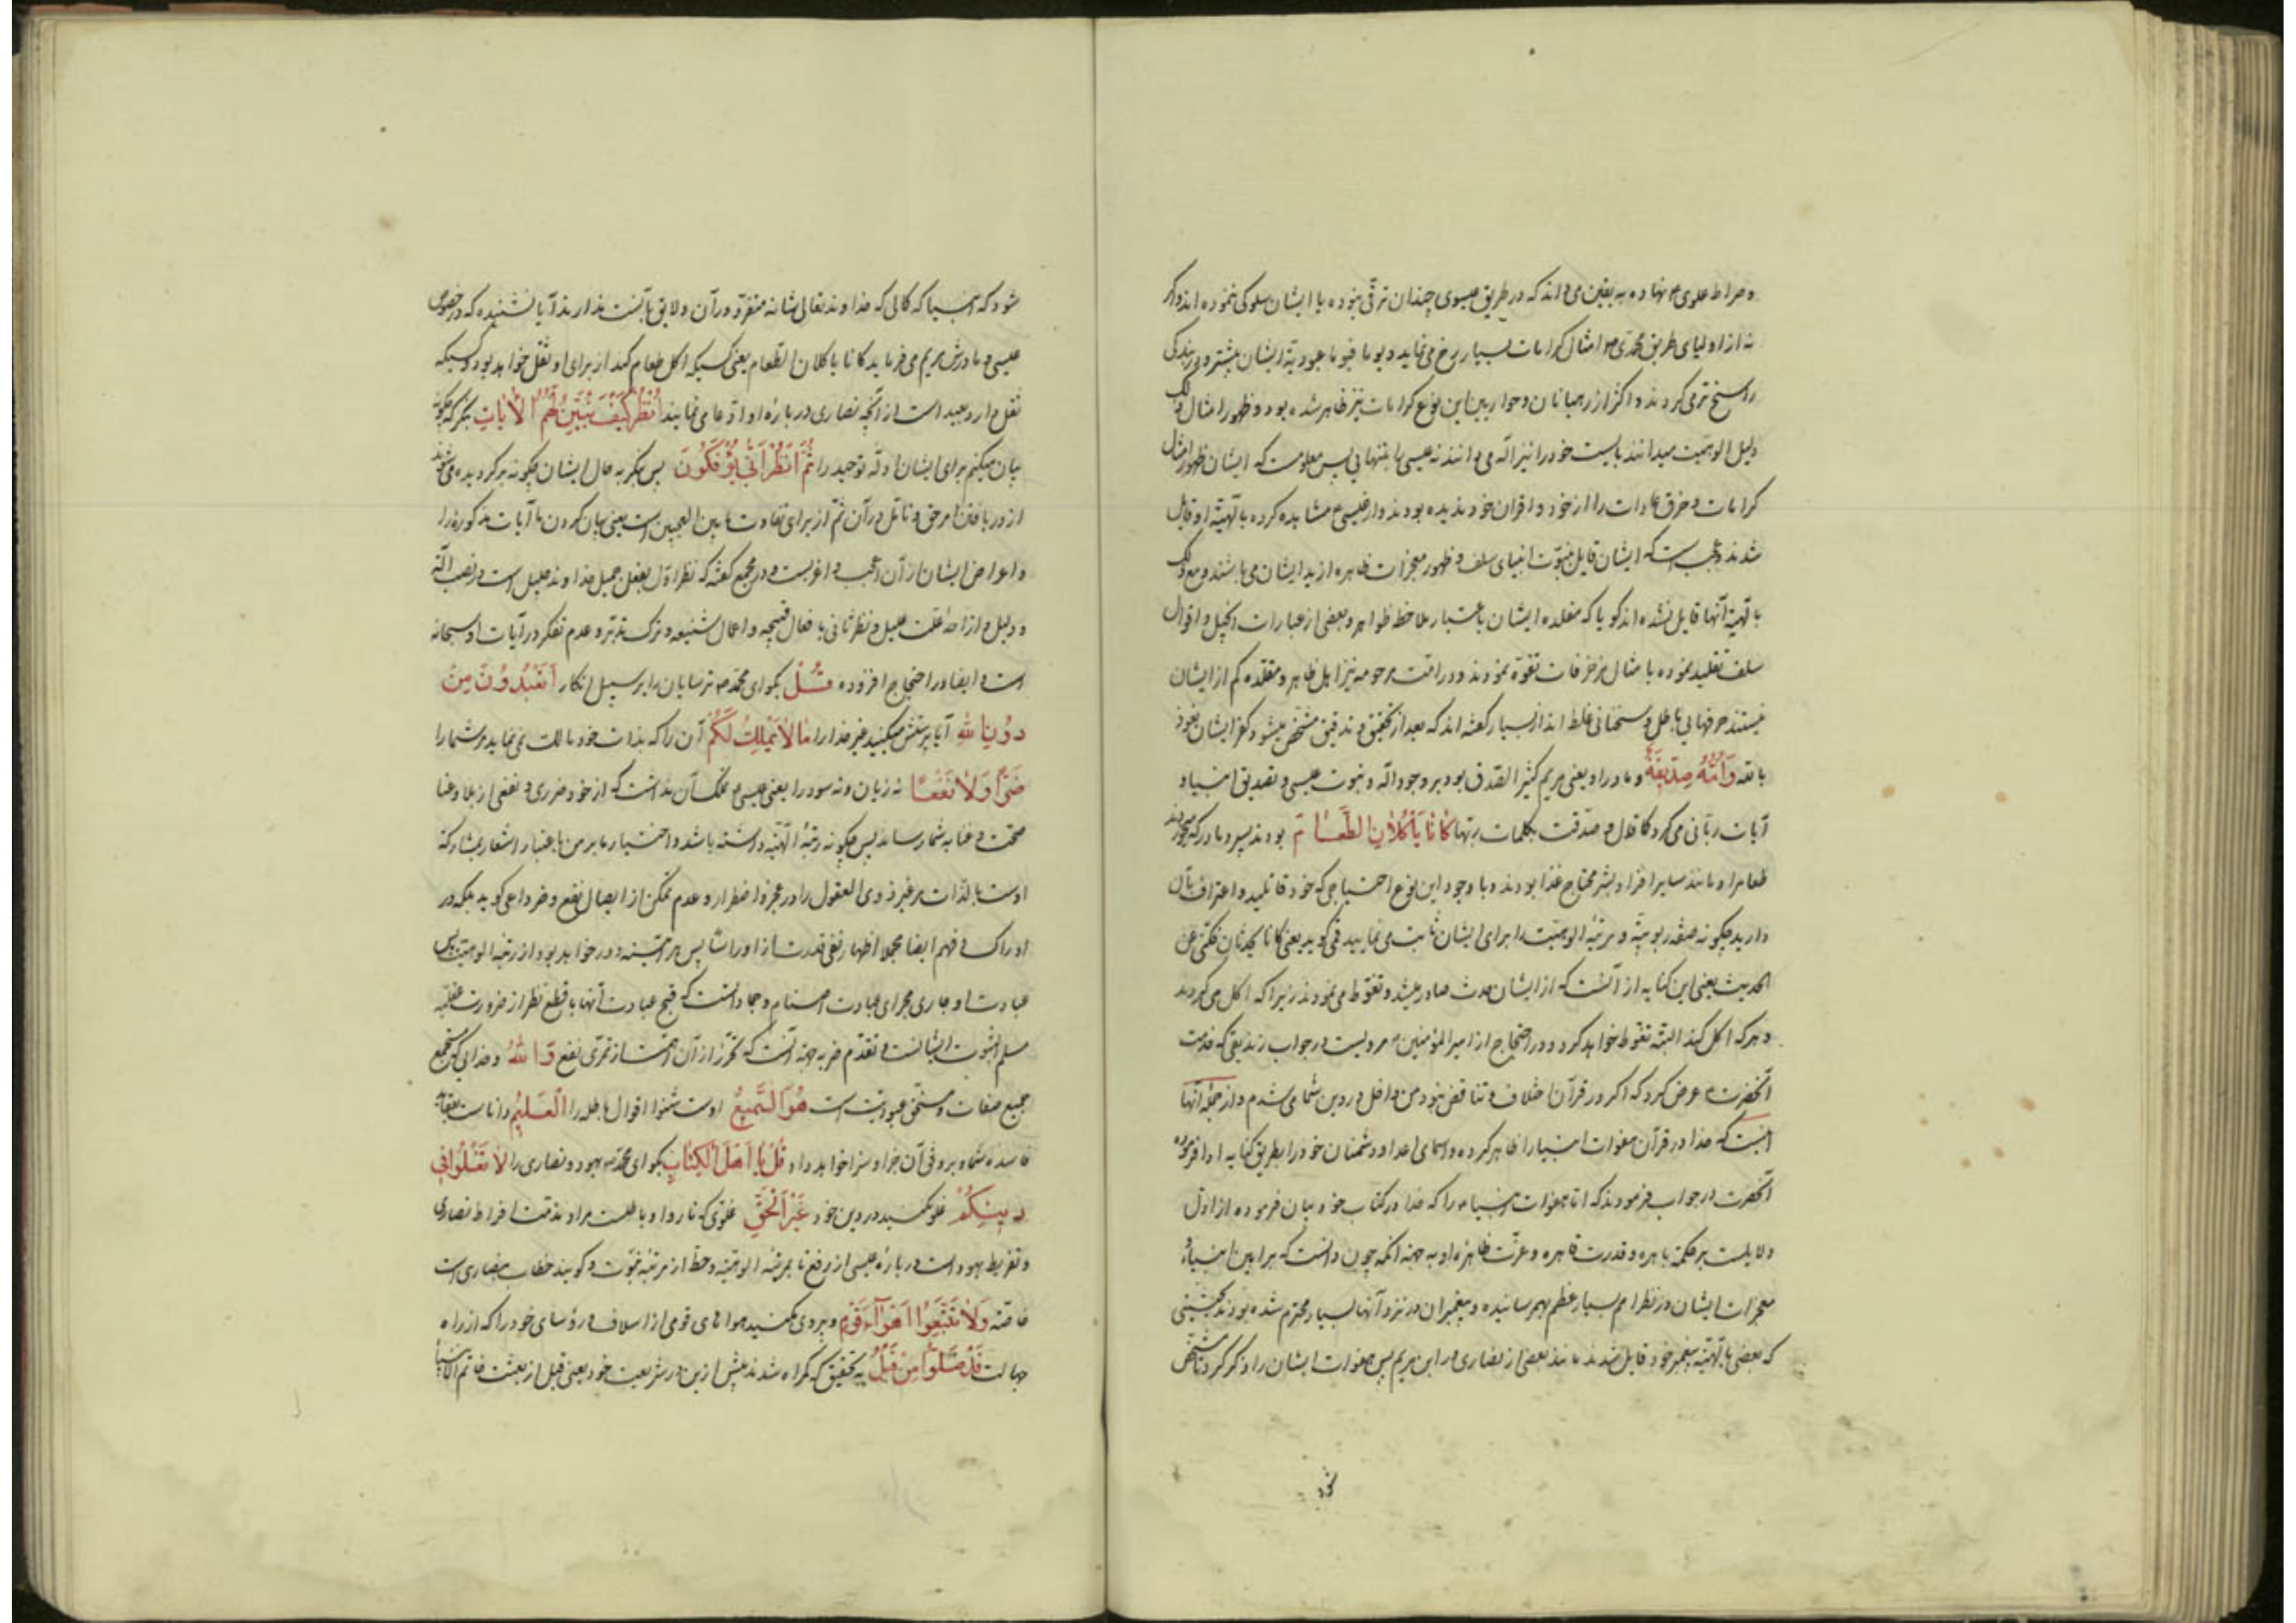 و صراط علوی م نهاده به یقین می‌داند که در طریق عیسوی چندان ترقی نبوده با ایشان سلوکی نموده اند و اگر
نه از اولیای طریق محمدی ص امثال کرامات بسیار رخ می‌نماید و یوما فیوما عبودیة ایشان بیشتر و در بندگی
راسخ تر می‌گردند و اکثر از رهبانان و حواریین این نوع کرامات نیز ظاهر شده بود و ظهور امثال
دلیل الوهیت میدانند بایست خود را نیز اله می‌دانند نه عیسی را بتنهایی پس معلومست که ایشان ظهور امثال
کرامات و خرق عادات را از خود و اقران خود ندیده بودند و از عیسی م مشاهده کرده بالهیة او قایل
شدند و عجب است که ایشان قایل بنبوت انبیای سلف و ظهور معجزات ظاهره از ید ایشان می‌باشند و مع ذلک
بالهیة آنها قایل نشده اند گویا که مقلده ایشان باعتبار ملاحظ ظواهر و بعضی از عبارات انجیل و اقوال
سلف تقلید نموده با مثال مزخرفات تفوه نمودند و در امت مرحومه نیز اهل ظاهر و مقلده کم از ایشان
نیستند حرفهایی باطل و سخنانی غلط اند از بسیار گفته اند که بعد از تحقیق و تدقیق مشخص میشود کفر ایشان نعوذ
بالله وَاُمُّهُ صِدّیقَةٌ و مادر او یعنی مریم کثیر الصدق بود بر وجود اله و نبوت عیسی و تصدیق انبیا و
آیات ربانی می‌کرد کما قال و صدقت بکلمات ربها کانا یَأکُلانِ الطَّعامَ بودند پسر و مادر که میخوردند
طعام را و مانند سایر افراد بشر محتاج غذا بودند و با وجود این نوع احتیاجی که خود قائلید و اعتراف بآن
دارید چگونه صفة ربوبیة و مرتبه الوهیت را برای ایشان ثابت می‌نمایید قمی گوید یعنی کانا یحدثان فکنی عن
الحدیث یعنی این کنایه از آنست که از ایشان حدث صادر میشد و تغوط می‌نمودند زیرا که اکل می‌کردند
و هر که اکل کند البته تغوط خواهد کرد و در احتجاج از امیر المؤمنین م مرویست در جواب زندیقی که خدمت
آنحضرت م عرض کرد که اگر در قرآن خلاف و تناقض نبود من داخل در دین شما می‌شدم و از جمله آنها
اینست که خدا در قرآن هفوات انبیا را ظاهر کرده و اسمای اعدا و دشمنان خود را بطریق کنایه ادا فرموده
آنحضرت در جواب فرمودند که اما هفوات انبیا م را که خدا در کتاب خود بیان فرموده از ادل
دلایلست بر حکمة باهره و قدرت قاهره و عزت ظاهره او به جهة آنکه چون دانست که براهین انبیاء و
معجزات ایشان در نظر امم بسیار عظم بهم رسانیده و پیغمبران در نزد آنها بسیار محترم شده بودند بحیثیتی
که بعضی بالهیة پیغمبر خود قایل شدند مانند بعضی از نصاری در ابن مریم پس هفوات ایشان را ذکر کرد تا مشخص
شود که انبیا که کمالی که خداوند تعالی شانه منفرد در آن و لایق بآنست ندارند آیا نشنیده که در خصوص
عیسی و مادرش مریم می‌فرماید کانا یاکلان الطعام یعنی کسیکه اکل طعام کند از برای او ثقل خواهد بود و کسیکه
ثقل دارد بعید است از آنچه نصاری در باره او ادعا می‌نمایند اُنظُر کَیفَ نُبَیِّنُ لَهُمُ الآیاتِ بنگر که چگونه
بیان میکنم برای ایشان ادله توحید را ثُمَّ انظُر اَنّی یُؤفَکونَ پس بنگر به حال ایشان چگونه برگردیده می‌شوند
از دریافتن امر حق و تامل در آن ثم از برای تفاوت مابین العجبین است یعنی بیان کردن ما آیات مذکوره را
و اعراض ایشان از آن اعجب و اغربست و در مجمع گفته که نظر اول بفعل جمیل خداوند جلیل است در نصب ادله
و دلیل و ازاحه علت علیل و نظر ثانی با فعال قبیحه و اعمال شنیعه و ترک تدبر و عدم تفکر در آیات او سبحانه
است و ایضا در احتجاج افزوده قُل بگو ای محمد ص ترسایان را بر سبیل انکار اَتَعبُدونَ مِن
دونِ اللهِ آیا پرستش میکنید غیر خدا را ما لا یَملِکُ لَکُم آن را که بذات خود مالک نمی‌نماید بر شما را
ضَرّاً وَلا نَفعاً نه زیان و نه سود را یعنی عیسی م تمکن آن نداشت که از خود ضرری و نفعی از بلا و عنا
صحت و غنا به شما رساند پس چگونه رتبه الهیة داشته باشد و اختیار ما بر من باعتبار اشعار بمشارکة
اوست بالذات بر غیر ذوی العقول را در عجز و اضطرار و عدم تمکن از ایصال نفع و ضر داعی گوید بلکه در
ادراک و فهم ایضا مجملا اظهار نفی قدرت از او راسا پس هر آینه دور خواهد بود از رتبه الوهیت پس
عبادت او جاری مجرای عبادت اصنام و جمادانست که قبح عبادت آنها با قطع نظر از ضرورت عقلیه
مسلم الثبوت ایشانست و تقدم ضر به جهة آنست که تحرز از آن اهمست از تحری نفع وَاللهُ و خدایی که مستجمع
جمیع صفات و مستحق عبودیت است هُوَ السَّمیعُ اوست شنوا اقوال باطله را العَلیمُ داناست بعقاید
فاسده شما و بر وفق آن جزا و سزا خواهد داد قُل یا اَهلَ الکِتابِ بگو ای محمد ص یهود و نصاری را لا تَغلوا فی
دینِکُم غلو مکنید در دین خود غَیرَ الحَقِّ غلوی که ناروا و باطلست مراد مذمت افراط نصاری
و تفریط یهود است در باره عیسی از رفع تا بمرتبه الوهیة و حط از مرتبه نبوت و گویند خطاب بنصاری است
خاصة وَلا تَتَّبِعوا اَهواءَ قَومٍ و پیروی مکنید هواهای قومی از اسلاف و رؤسای خود را که از راه
جهالت قَد ضَلّوا مِن قَبلُ به تحقیق که گمراه شدند پیش ازین در شریعت خود یعنی قبل از بعثت خاتم الانبیا